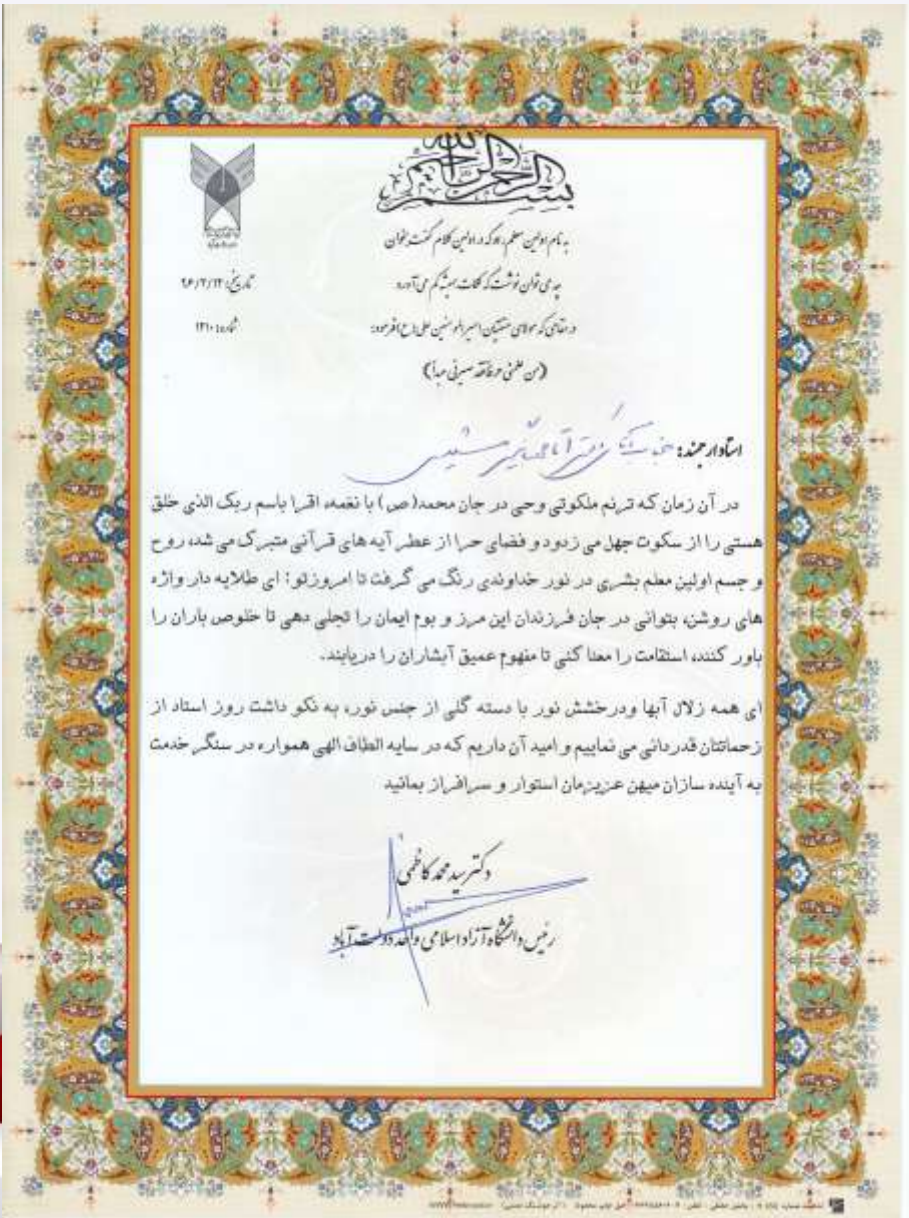 بسم الله الرحمن الرحیم
به نام اولین معلم، او که در اولین کلام گفت بخوان
چه می توان نوشت که کلمات همیشه کم می آورد
در مقامی که مولای متقیان امیرالمومنین علی (ع) فرمود:
(من علمنی حرفا فقد صیرنی عبداً)
تاریخ:
شماره:
استاد ارجمند: جناب آقای دکتر
در آن زمان که ترنم ملکوتی وحی در جان محمد(ص) با نغمه، اقرا باسم ربک الذی خلق
هستی را از سکوت جهل می زدود و فضای حرا از عطر آیه های قرآنی متبرک می شد، روح
و جسم اولین معلم بشری در نور خداوندی رنگ می گرفت تا امروزتو؛ ای طلایه دار واژه
های روشن، بتوانی در جان فرزندان این مرز و بوم ایمان را تجلی دهی تا خلوص باران را
باور کنند، استقامت را معنا کنی تا مفهوم عمیق آبشاران را دریابند.
ای همه زلال آبها ودرخشش نور با دسته گلی از جنس نور، به نکو داشت روز استاد از
زحماتتان قدردانی می نماییم و امید آن داریم که در سایه الطاف الهی همواره در سنگر خدمت
به آینده سازان میهن عزیزمان استوار و سرافراز بمانید
دکتر سید محمد کاظمی
رئیس دانشگاه آزاد اسلامی واحد دولت آباد